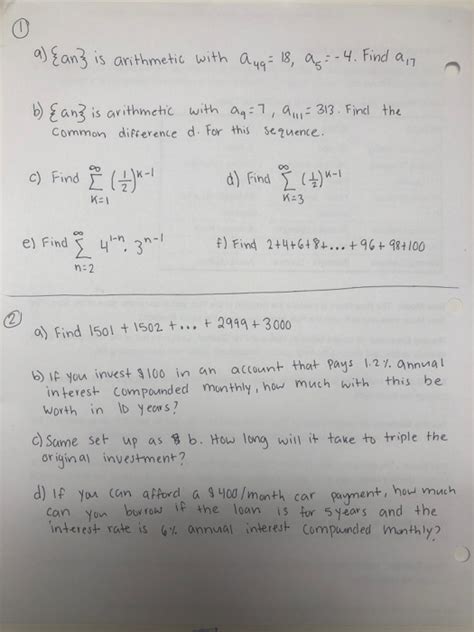 ①
a) {an} is arithmetic with a₄₉ = 18, a₅ = -4. Find a₁₇
b) {an} is arithmetic with a₉ = 7, a₁₁₁ = 313. Find the
common difference d. For this sequence.
c) Find ∞ Σ K=1 (1/2)^K-1 d) Find ∞ Σ K=3 (1/2)^K-1
e) Find ∞ Σ n=2 4^1-n · 3^n-1 f) Find 2+4+6+8+...+96+98+100
②
a) Find 1501 + 1502 + ... + 2999 + 3000
b) If you invest $100 in an account that pays 1.2% annual
interest compounded monthly, how much with this be
worth in 10 years?
c) Same set up as b. How long will it take to triple the
original investment?
d) If you can afford a $400/month car payment, how much
can you borrow if the loan is for 5 years and the
interest rate is 6% annual interest compounded monthly?